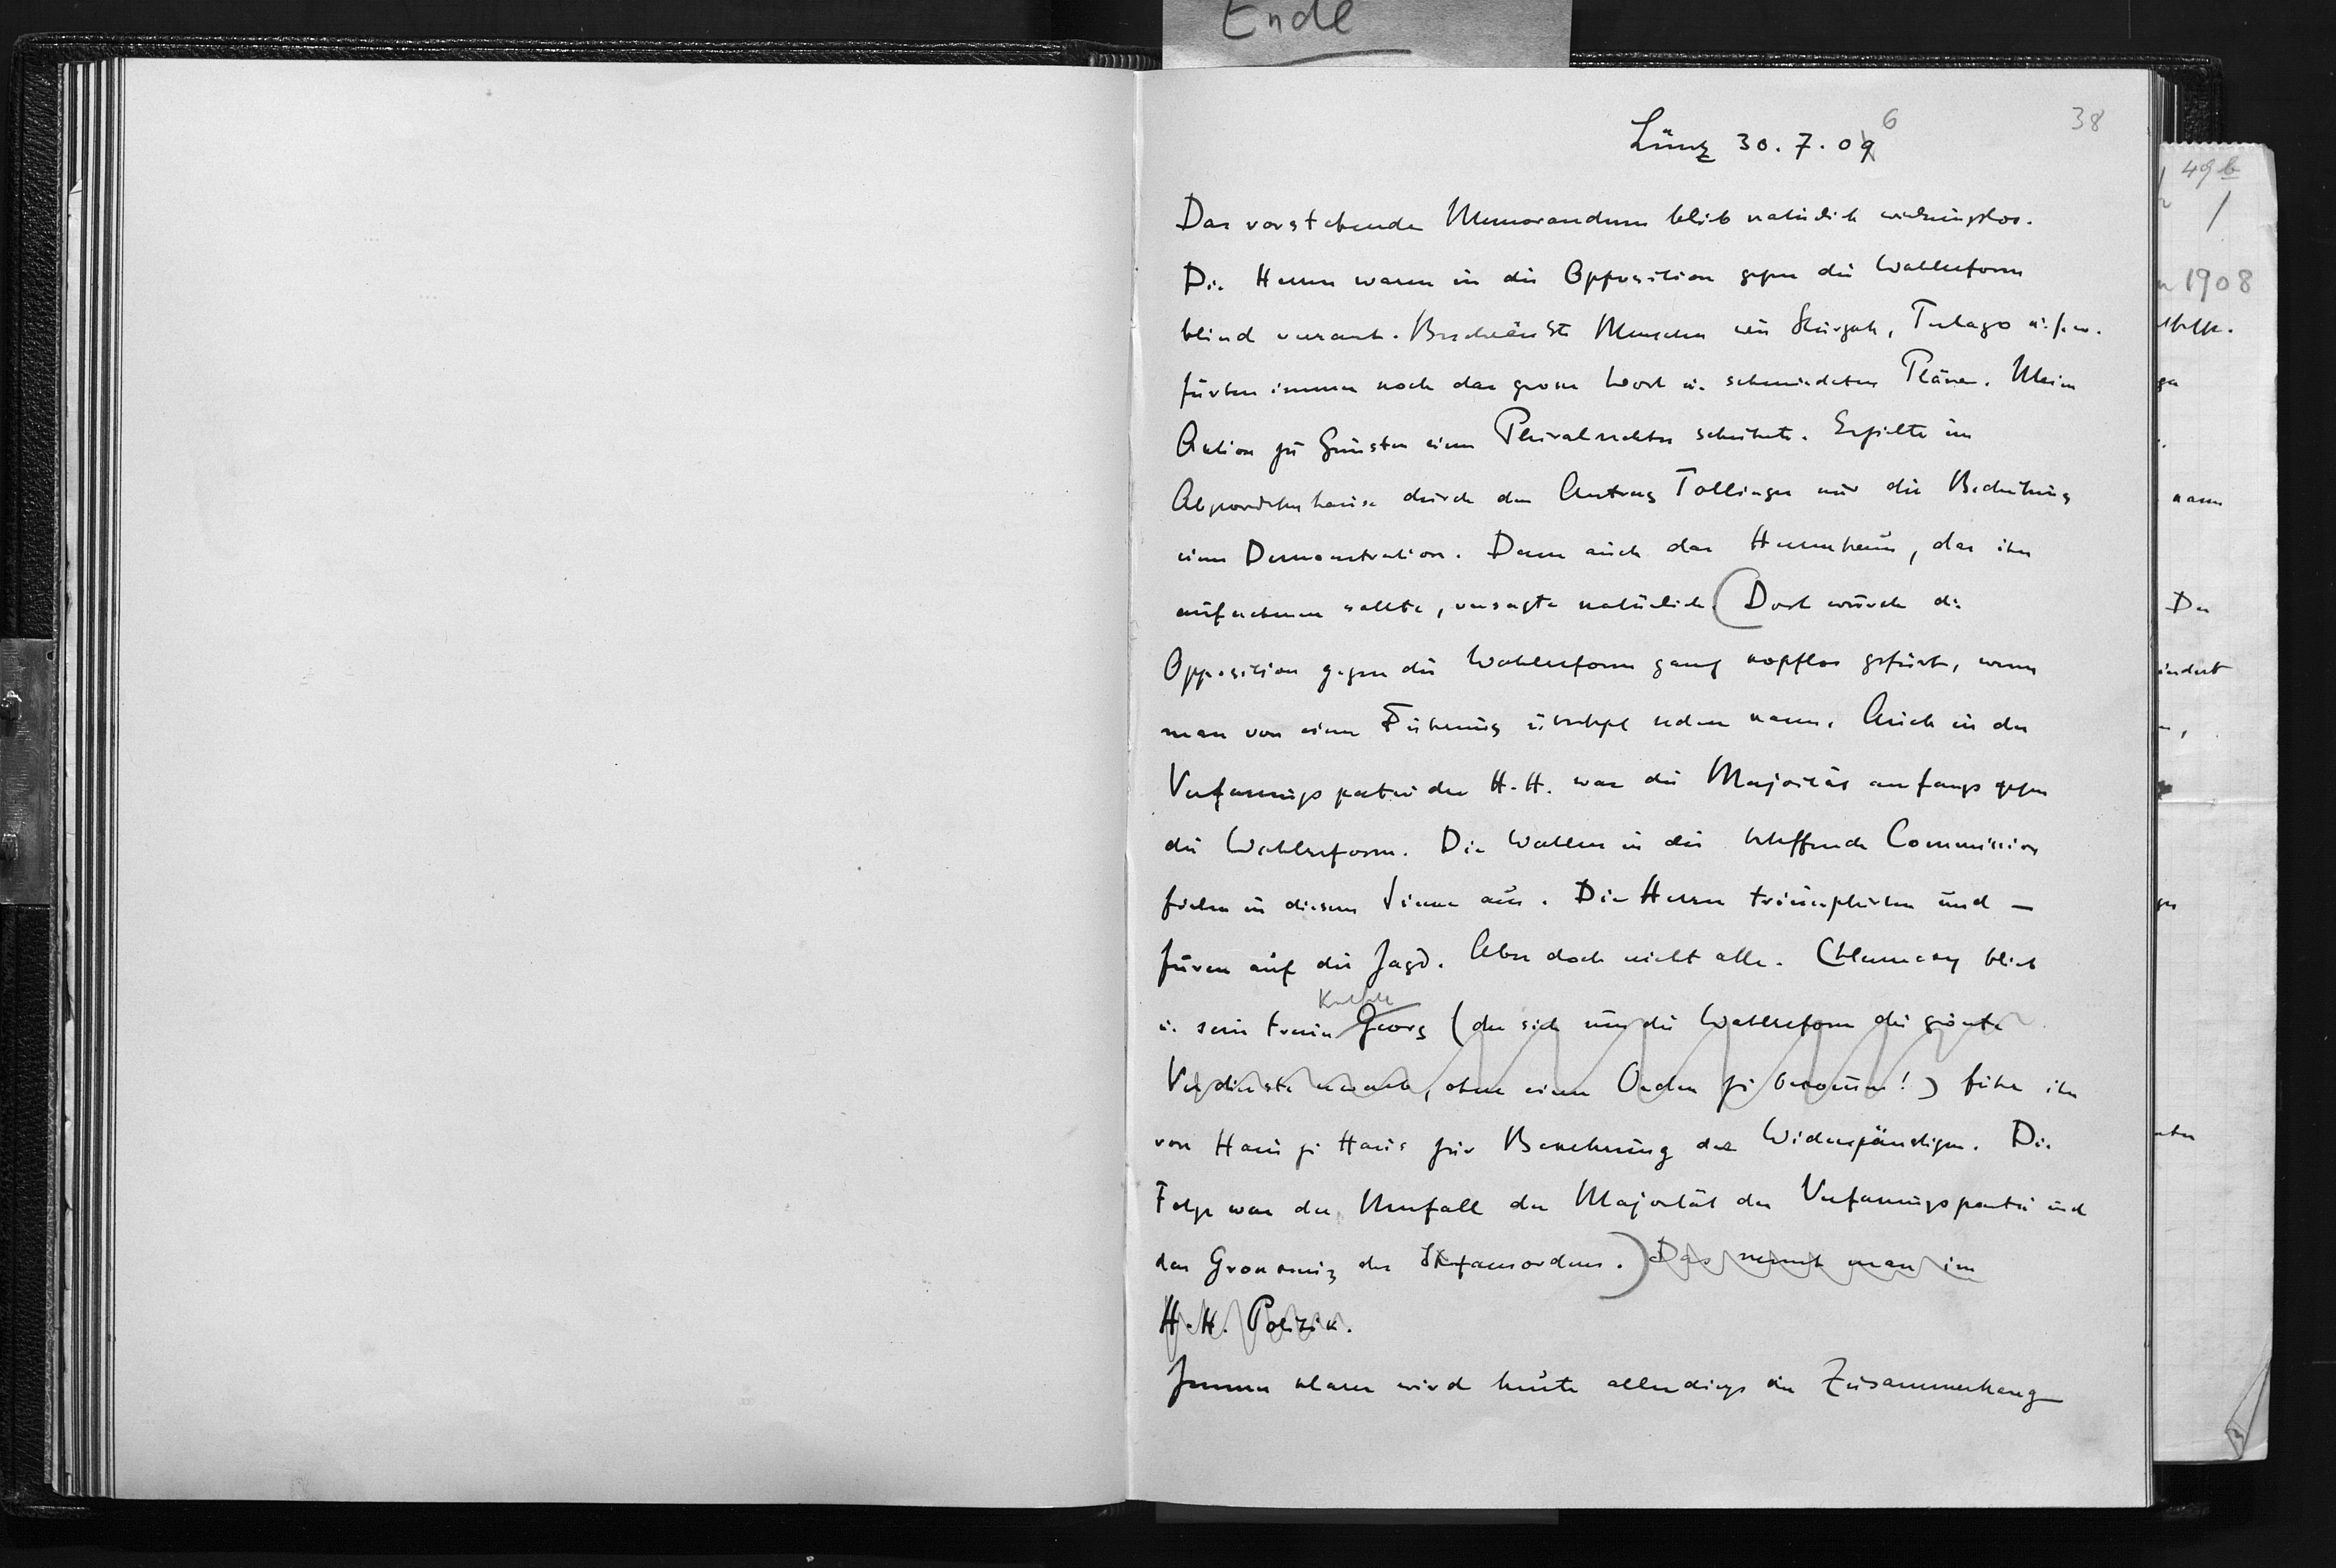 Ende
38
6
Lunz 30. 7. 09
Das vorstehende Memorandum blieb natürlich wirkungslos.
Die Herren waren in die Opposition gegen die Wahlreform
blind verrant. Beschränkte Menschen wie Stürgkh, Treuga u.s.w.
fürten immer noch das grosse Wort u. schmiedeten Pläne. Meine
Aktion zu Gunsten eines Pluralrechtes scheiterte. Erzielte im
Abgeordetenhause durch den Antrag Tollinger nur die Bedeutung
einer Demonstration. Denn auch das Herrenhaus, das ihn
aufnehmen sollte, versagte natürlich. (Dort wurde die
Opposition gegen die Wahlreform ganz kopflos gefürt, wenn
man von einer Fürung überhpt reden kann. Auch in der
Verfassungspartei des H.H. war die Majorität anfangs gegen
die Wahlreform. Die Wahlen in die betreffende Commission
fielen in diesem Sinne aus. Die Herren triumphirten und –
furen auf die Jagd. Aber doch nicht alle. Chlumecky blieb
u. sein treuer Georg (der sich um die Wahlreform die grösste
Verdienste erwarb, ohne einen Orden zu bekommen!) fürte ihn
von Haus zu Haus zur Bekehrung der Widerspänstigen. Die
Folge war der Umfall der Majorität der Verfassungspartei und
das Grosskreuz des Stefansordens.) Das nennt man im
H.H. Politik.
Immer klarer wird heute allerdings der Zusammenhang
49 b
1
1908
kann
Der
indert